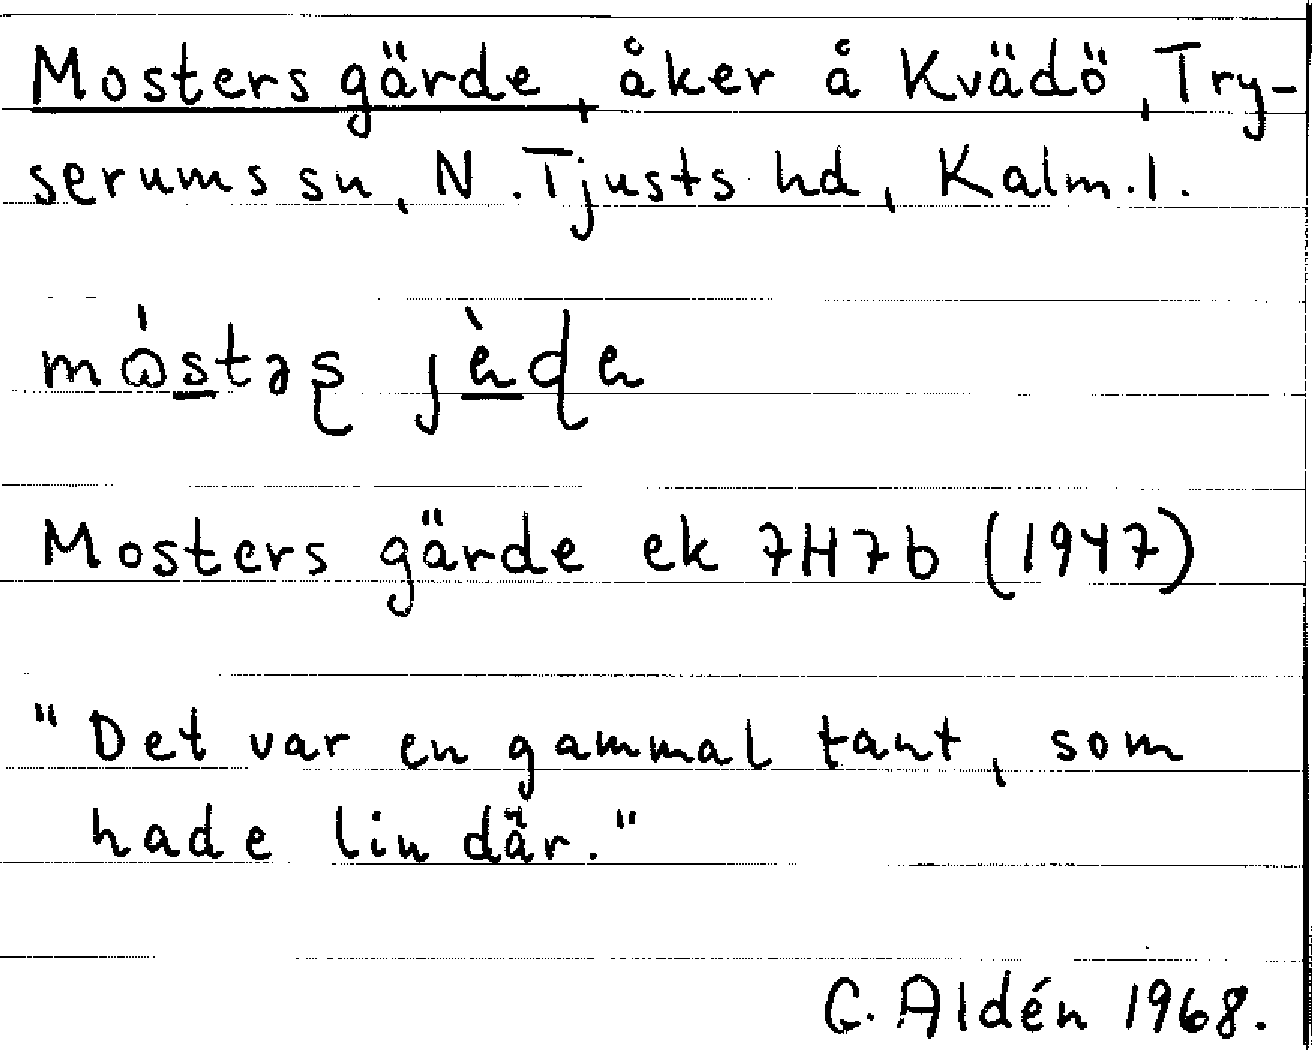 Mosters gärde, åker å Kvädö, Try-
serums sn, N. Tjusts hd, Kalm. l.
Mosters gärde ek 7H7b (1947)
"Det var en gammal tant, som
hade lin där."
G. Aldén 1968.